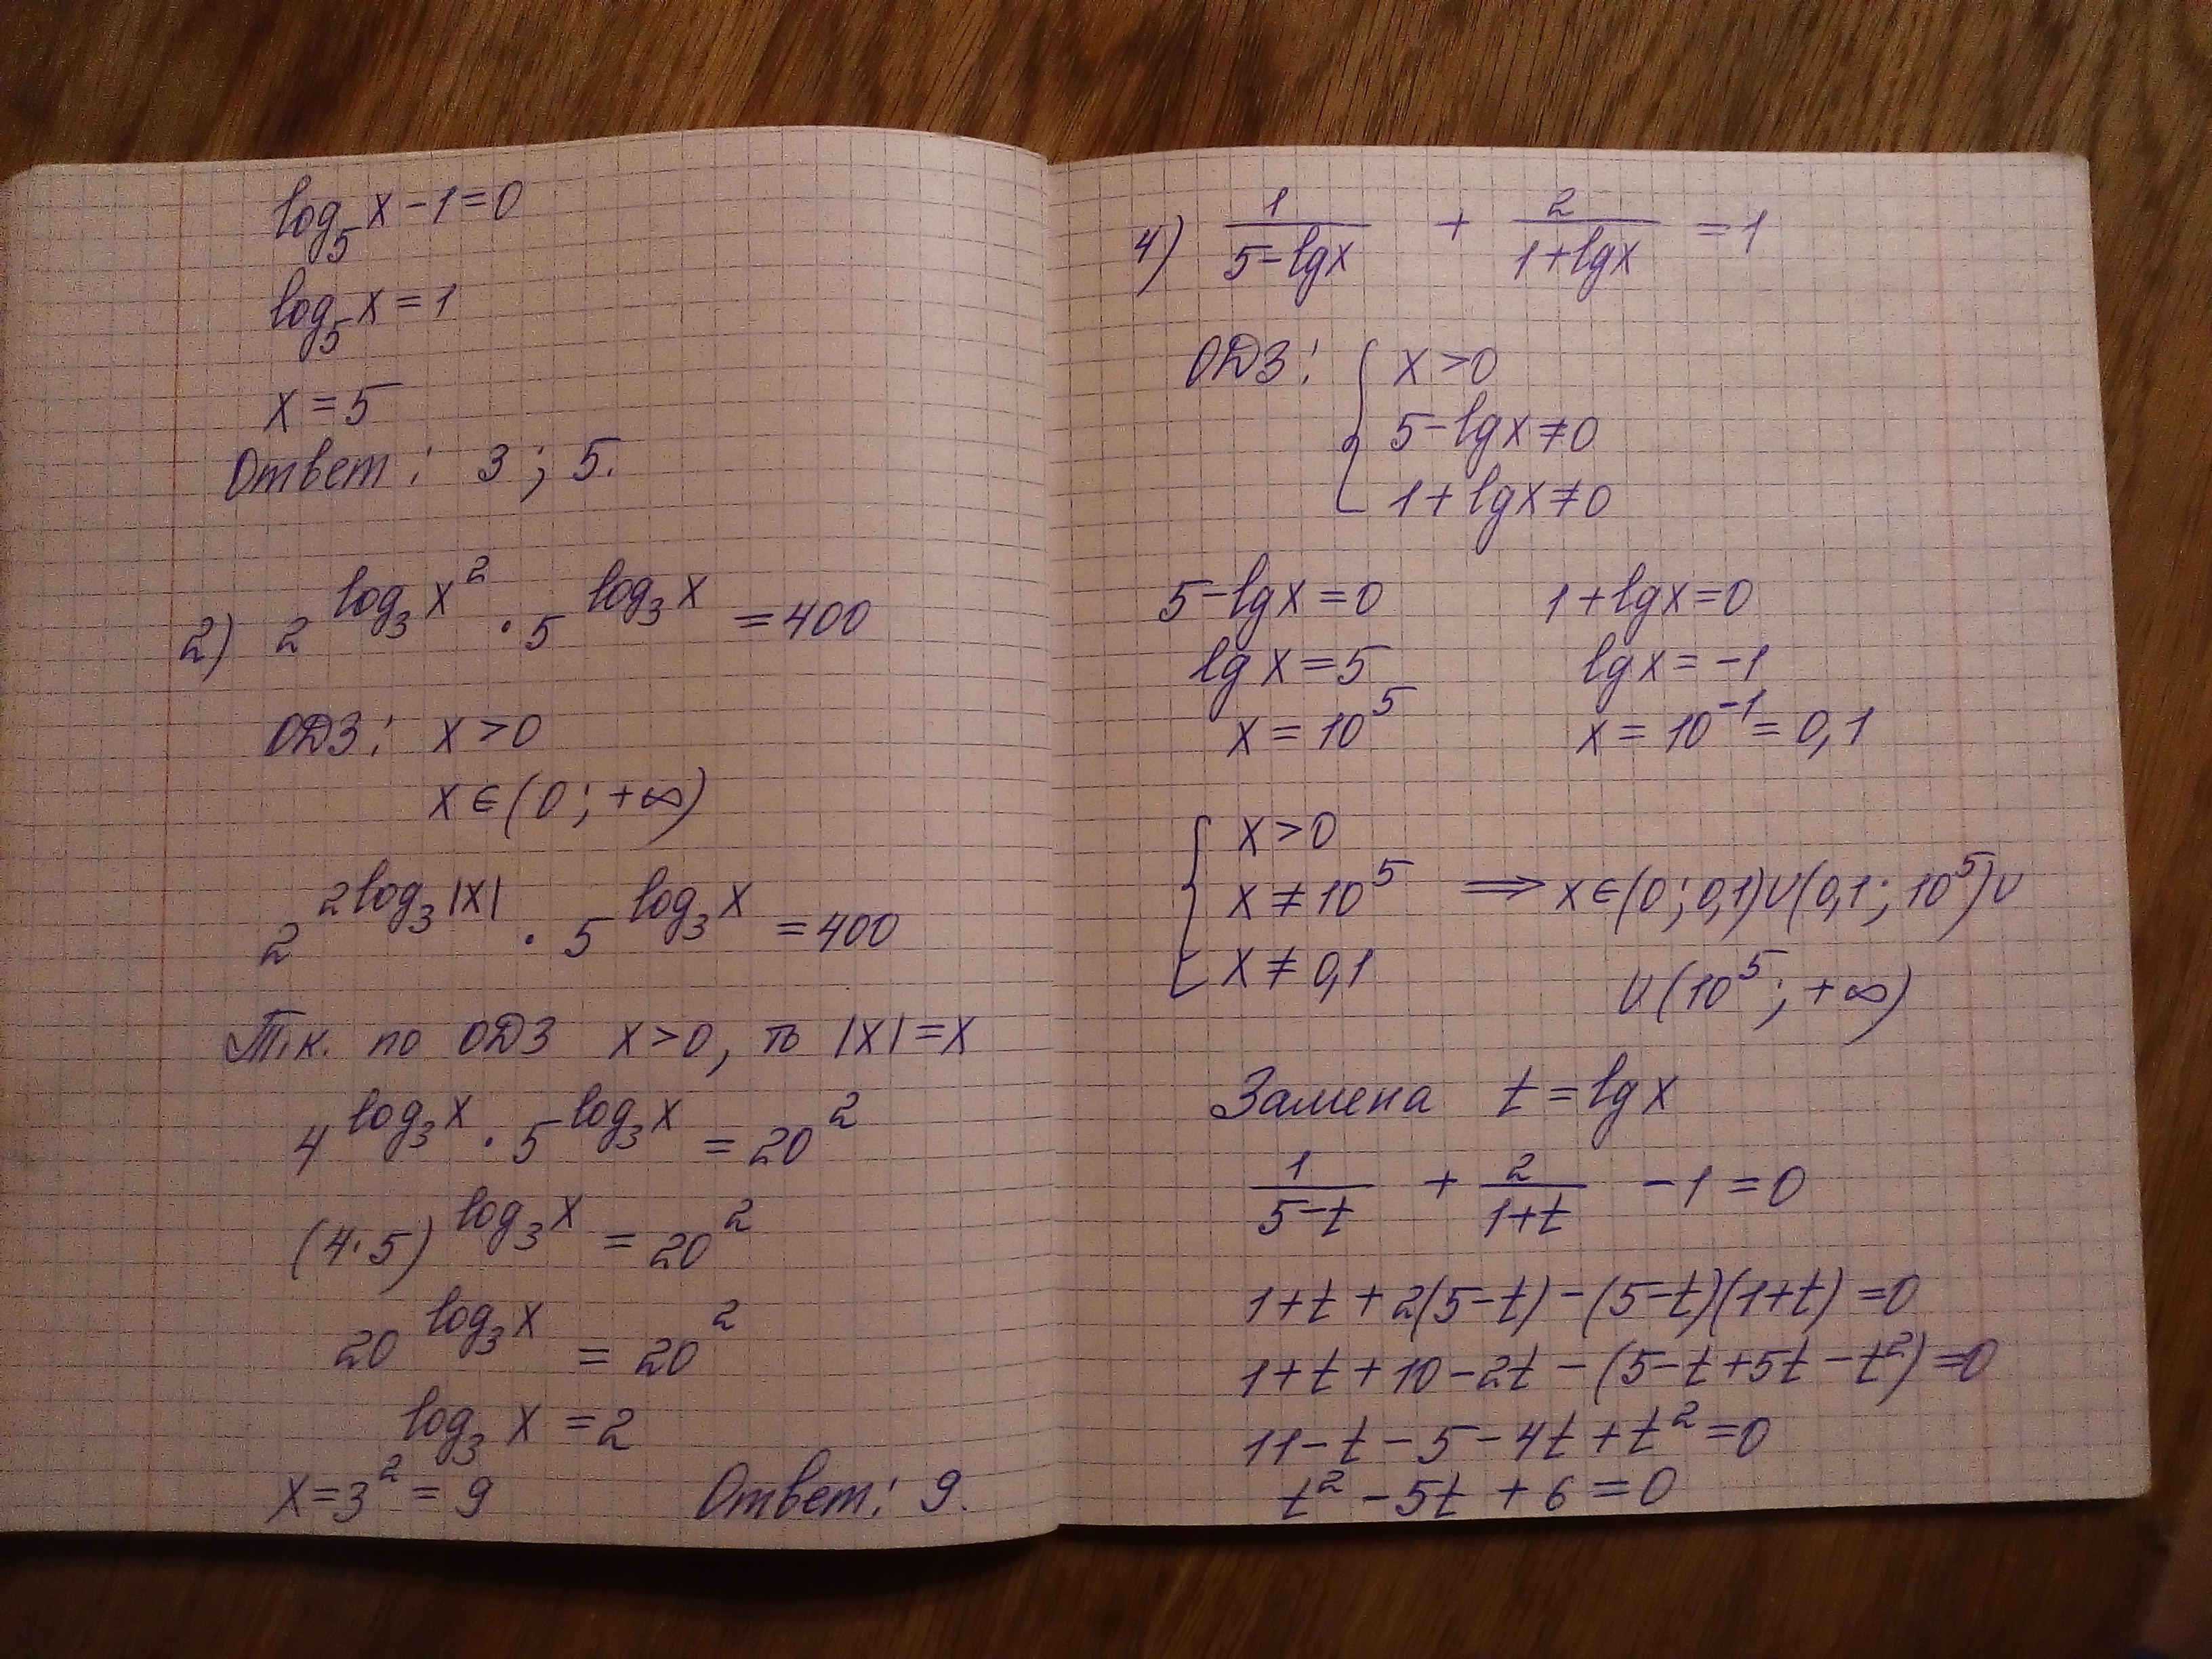 log₅x - 1 = 0
log₅x = 1
x = 5
Ответ: 3; 5.
2) 2^(log₃x²) · 5^(log₃x) = 400
ОДЗ: x > 0
x ∈ (0; +∞)
2^(2log₃|x|) · 5^(log₃x) = 400
Т.к. по ОДЗ x > 0, то |x| = x
4^(log₃x) · 5^(log₃x) = 20²
(4·5)^(log₃x) = 20²
20^(log₃x) = 20²
log₃x = 2
x = 3² = 9 Ответ: 9.
4) 1/(5-lgx) + 2/(1+lgx) = 1
ОДЗ: { x > 0
5-lgx ≠ 0
1+lgx ≠ 0
5-lgx = 0 1+lgx = 0
lgx = 5 lgx = -1
x = 10⁵ x = 10⁻¹ = 0,1
{ x > 0
x ≠ 10⁵ ⟹ x ∈ (0; 0,1) ∪ (0,1; 10⁵) ∪
x ≠ 0,1 ∪ (10⁵; +∞)
Замена t = lgx
1/(5-t) + 2/(1+t) - 1 = 0
1+t+2(5-t)-(5-t)(1+t) = 0
1+t+10-2t-(5-t+5t-t²) = 0
11-t-5-4t+t² = 0
t²-5t+6 = 0